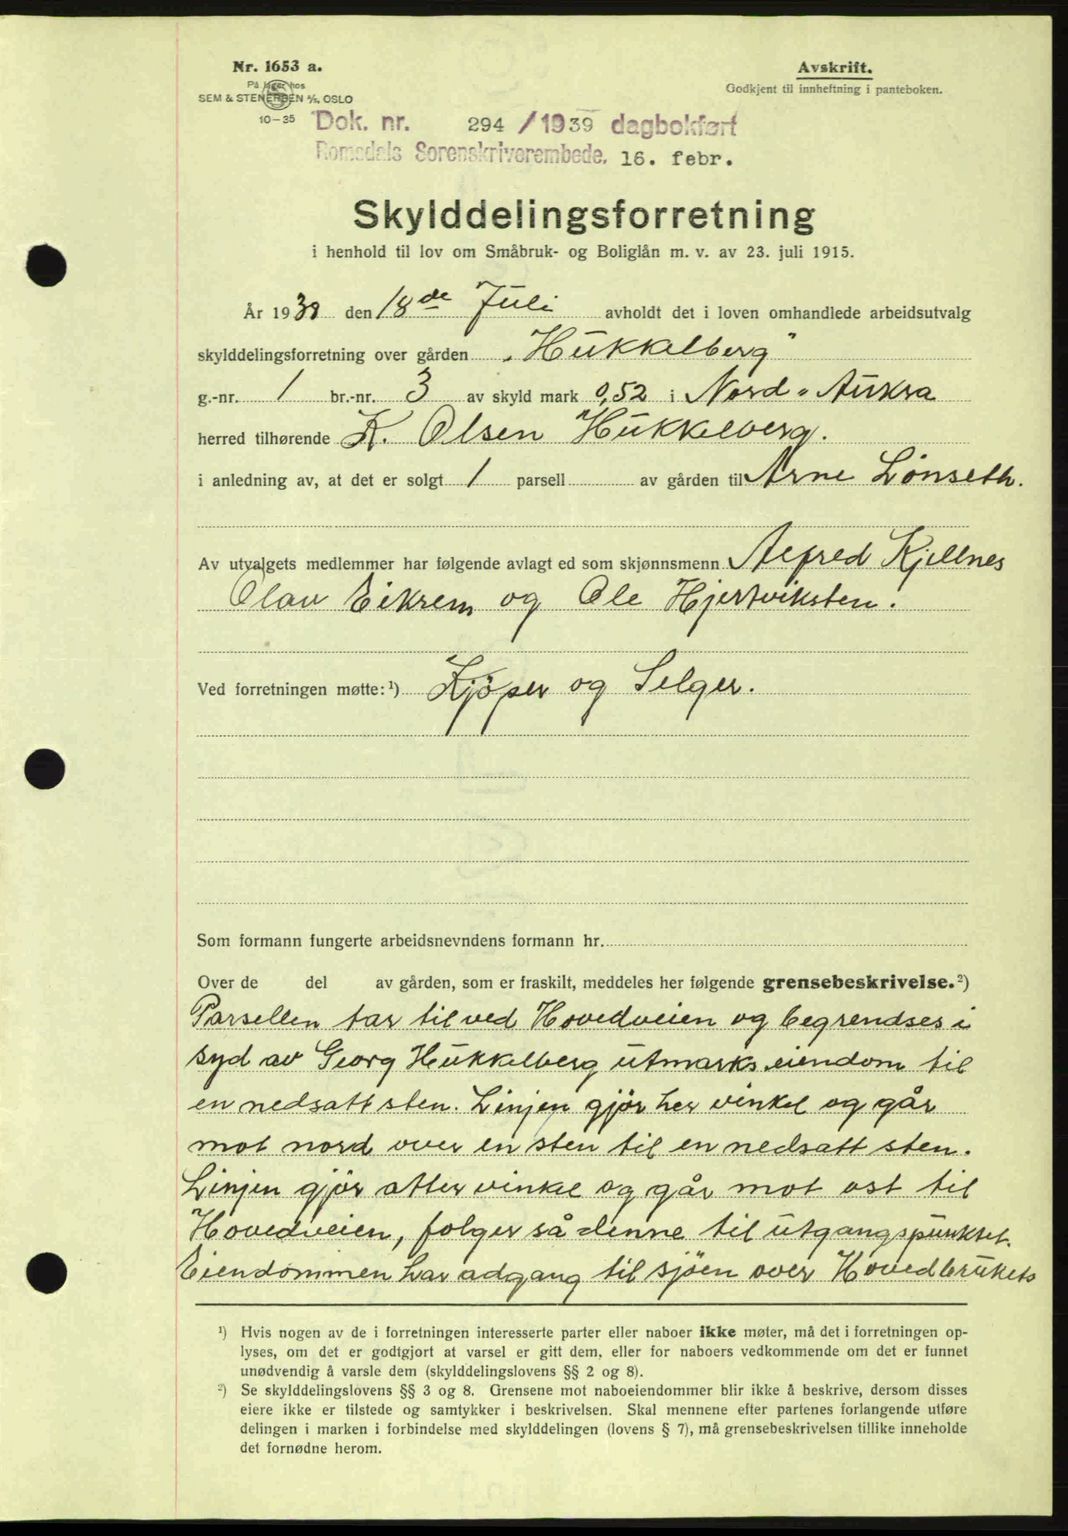 Nr. 1653 a.
På lager hos
SEM & STENERSEN A/S, OSLO
10-35
Avskrift.
Godkjent til innheftning i panteboken.
Dok. nr. 294 /1939 dagbokført
Romsdals Sorenskriverembede. 16. febr.
Skylddelingsforretning
i henhold til lov om Småbruk- og Boliglån m. v. av 23. juli 1915.
År 1938 den 18de Juli avholdt det i loven omhandlede arbeidsutvalg
skylddelingsforretning over gården „Hukkelberg"
g.-nr. 1 br.-nr. 3 av skyld mark 0,52 i Nord-Aukra
herred tilhørende K. Olsen Hukkelberg.
i anledning av, at det er solgt 1 parsell av gården til Arne Lönseth.
Av utvalgets medlemmer har følgende avlagt ed som skjønnsmenn Alfred Kjellnes
Olav Eikrem og Ole Hjertviksten.
Ved forretningen møtte:¹) Kjöper og Selger.
Som formann fungerte arbeidsnevndens formann hr.
Over de del av gården, som er fraskilt, meddeles her følgende grensebeskrivelse.²)
Parsellen tar til ved Hovedveien og begrendses i
syd av Georg Hukkelberg utmarkseiendom til
en nedsatt sten. Linjen gjör her vinkel og går
mot nord over en sten til en nedsatt sten.
Linjen gjör atter vinkel og går mot ost til
Hovedveien, folger så denne til utgangspunktet.
Eiendommen har adgang til sjöen over Hovedbrukets
¹) Hvis nogen av de i forretningen interesserte parter eller naboer ikke møter, må det i forretningen op-
lyses, om det er godtgjort at varsel er gitt dem, eller for naboers vedkommende om det er funnet
unødvendig å varsle dem (skylddelingslovens §§ 2 og 8).
²) Se skylddelingslovens §§ 3 og 8. Grensene mot naboeiendommer blir ikke å beskrive, dersom disses
eiere ikke er tilstede og samtykker i beskrivelsen. Skal mennene efter partenes forlangende utføre
delingen i marken i forbindelse med skylddelingen (lovens § 7), må grensebeskrivelsen tillike inneholde
det fornødne herom.